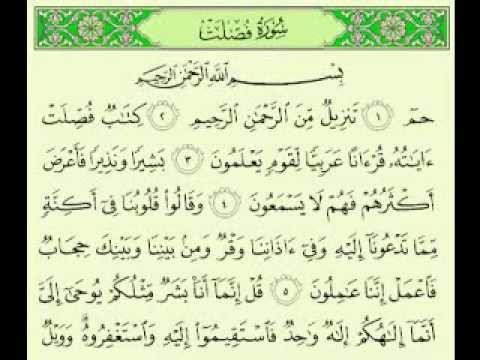 سُورَةُ فُصِّلَتْ
بِسْمِ ٱللَّهِ ٱلرَّحْمَٰنِ ٱلرَّحِيمِ
حمٓ ۝١ تَنزِيلٌ مِّنَ ٱلرَّحْمَٰنِ ٱلرَّحِيمِ ۝٢ كِتَٰبٌ فُصِّلَتْ
ءَايَٰتُهُۥ قُرْءَانًا عَرَبِيًّا لِّقَوْمٍ يَعْلَمُونَ ۝٣ بَشِيرًا وَنَذِيرًا فَأَعْرَضَ
أَكْثَرُهُمْ فَهُمْ لَا يَسْمَعُونَ ۝٤ وَقَالُوا۟ قُلُوبُنَا فِىٓ أَكِنَّةٍ
مِّمَّا تَدْعُونَآ إِلَيْهِ وَفِىٓ ءَاذَانِنَا وَقْرٌ وَمِنۢ بَيْنِنَا وَبَيْنِكَ حِجَابٌ
فَٱعْمَلْ إِنَّنَا عَٰمِلُونَ ۝٥ قُلْ إِنَّمَآ أَنَا۠ بَشَرٌ مِّثْلُكُمْ يُوحَىٰٓ إِلَىَّ
أَنَّمَآ إِلَٰهُكُمْ إِلَٰهٌ وَٰحِدٌ فَٱسْتَقِيمُوٓا۟ إِلَيْهِ وَٱسْتَغْفِرُوهُ ۗ وَوَيْلٌ